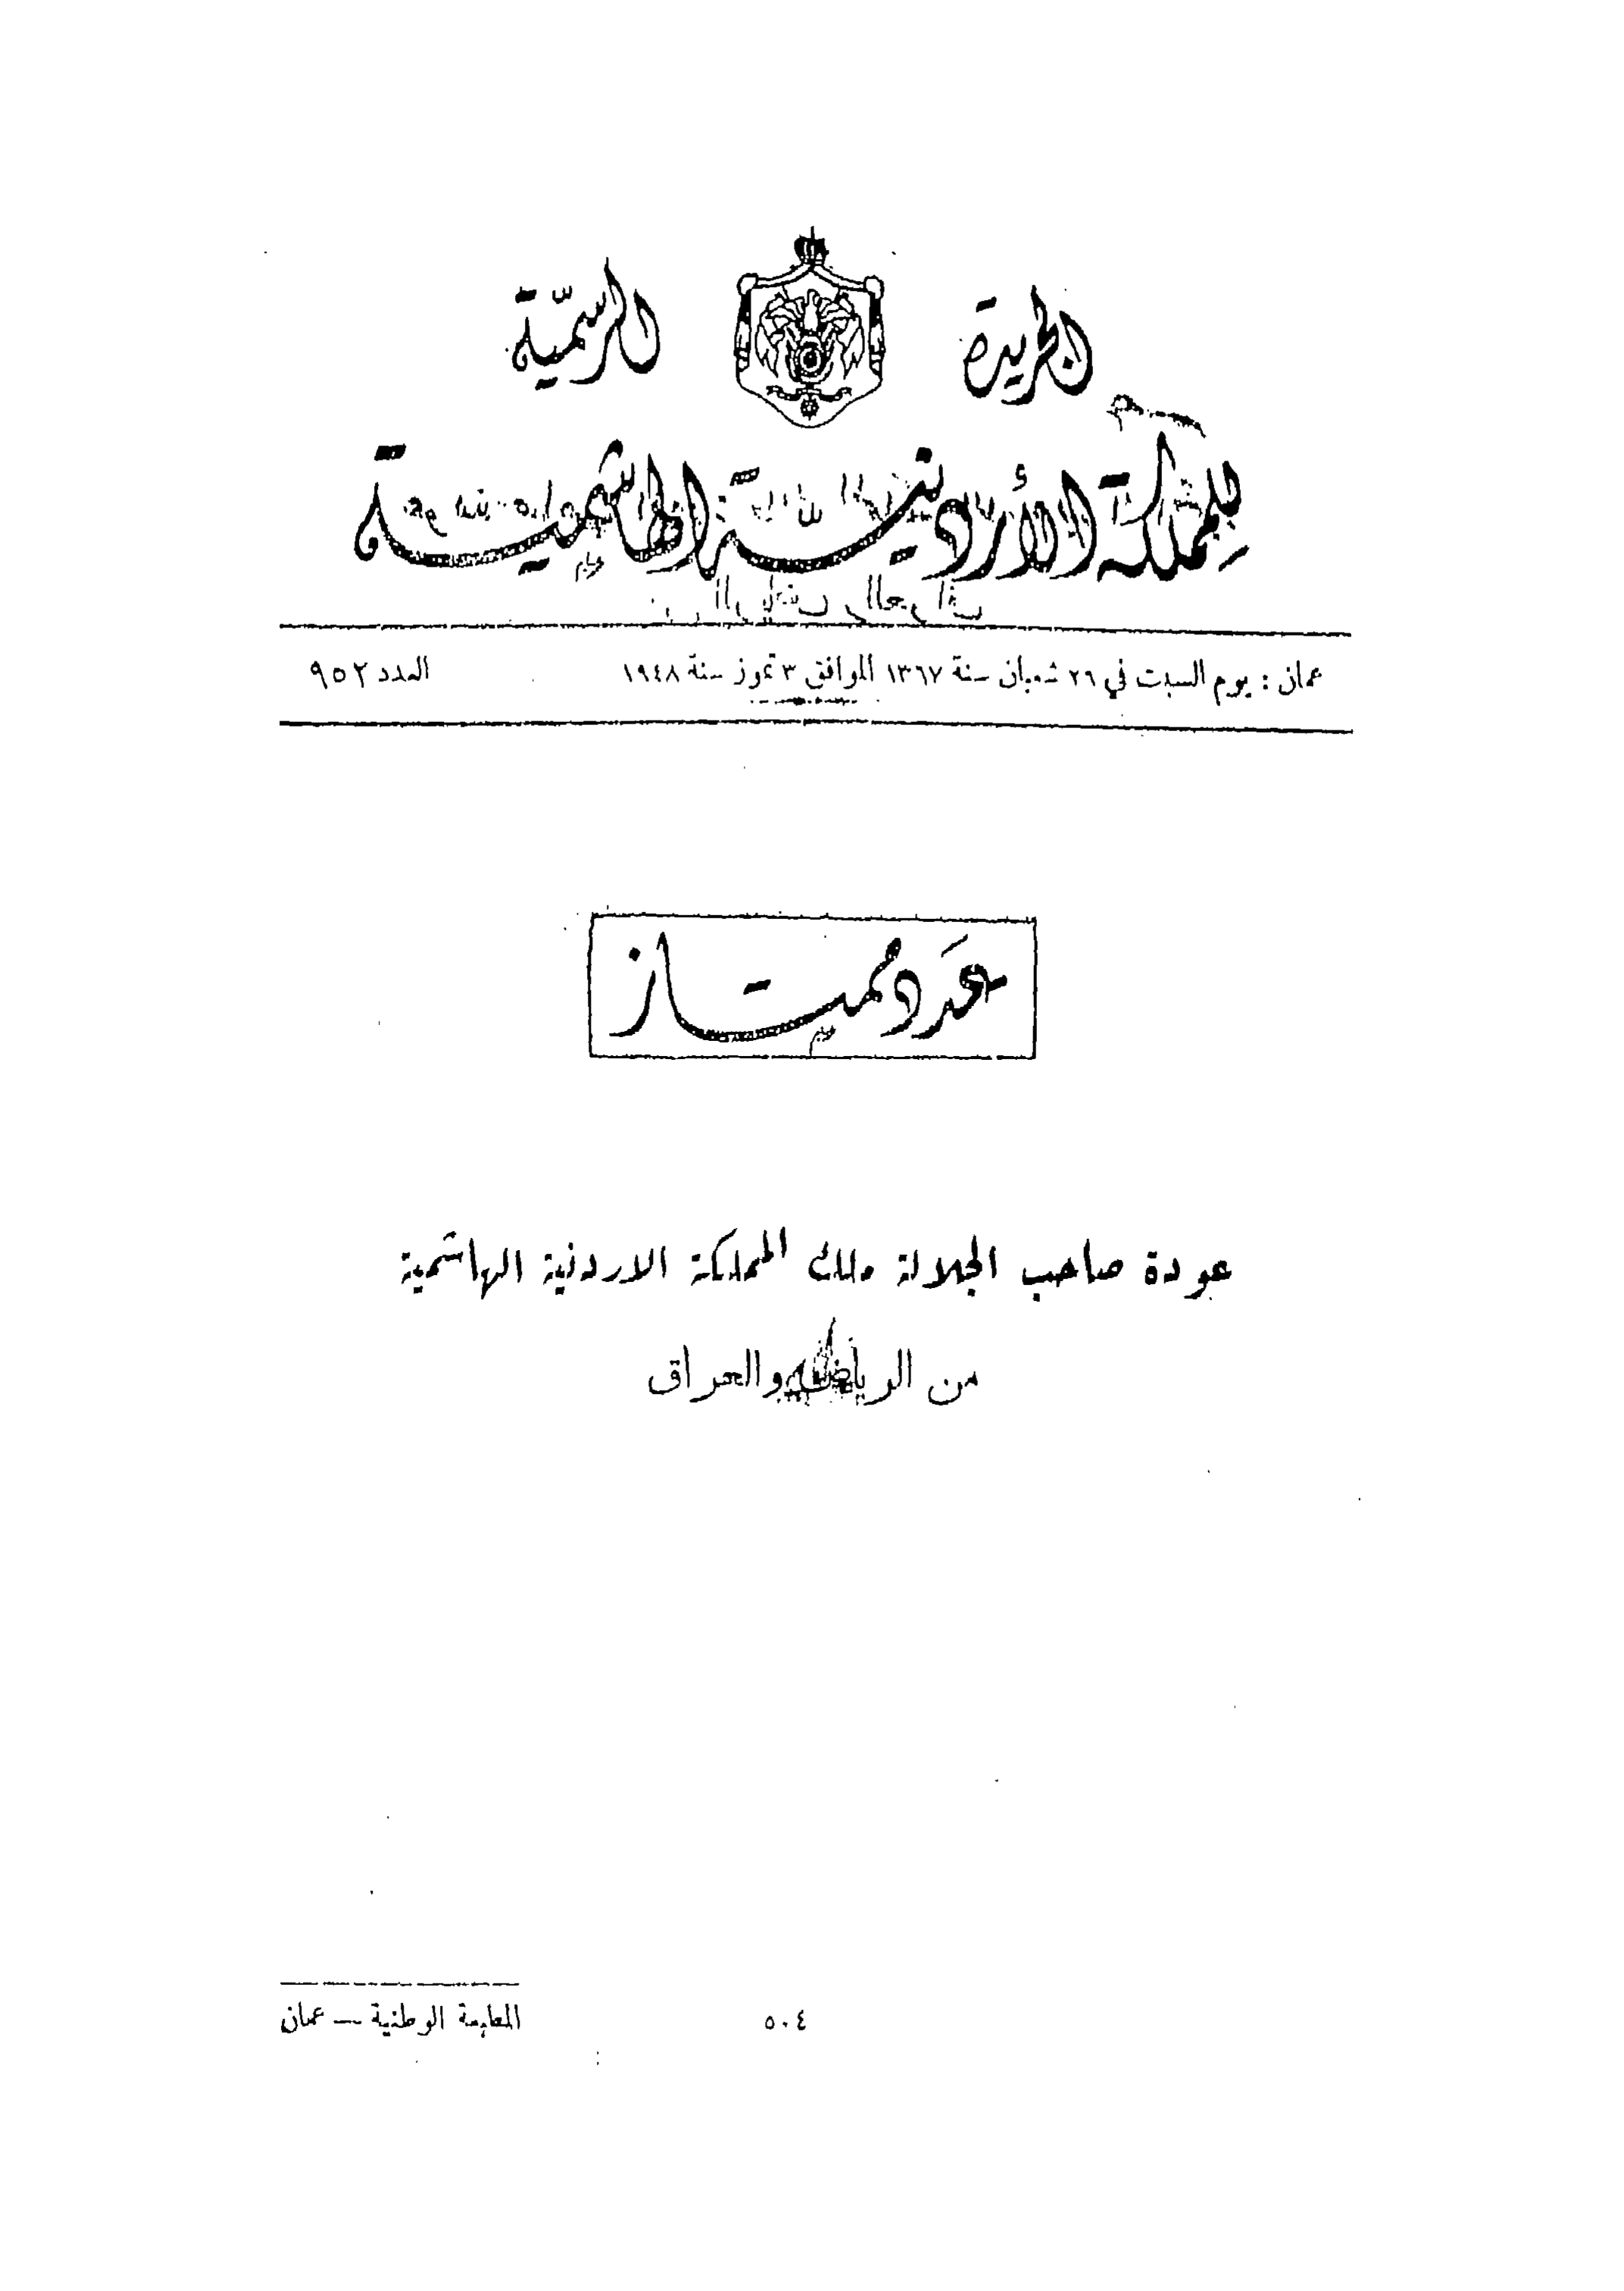 الجريدة الرسمية
للمملكة الأردنية الهاشمية
عمان : يوم السبت في ٢٦ شعبان سنة ١٣٦٧ الموافق ٣ تموز سنة ١٩٤٨ العدد ٩٥٢
عدد ممتاز
عودة صاحب الجلالة ملك المملكة الاردنية الهاشمية
من الرياض والعراق
٥٠٤
المطبعة الوطنية — عمان